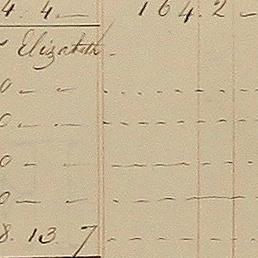 4. 4. — 164. 2 —
Elizabeth
0 — —
0 — —
0 — —
0 — —
8. 13. 7